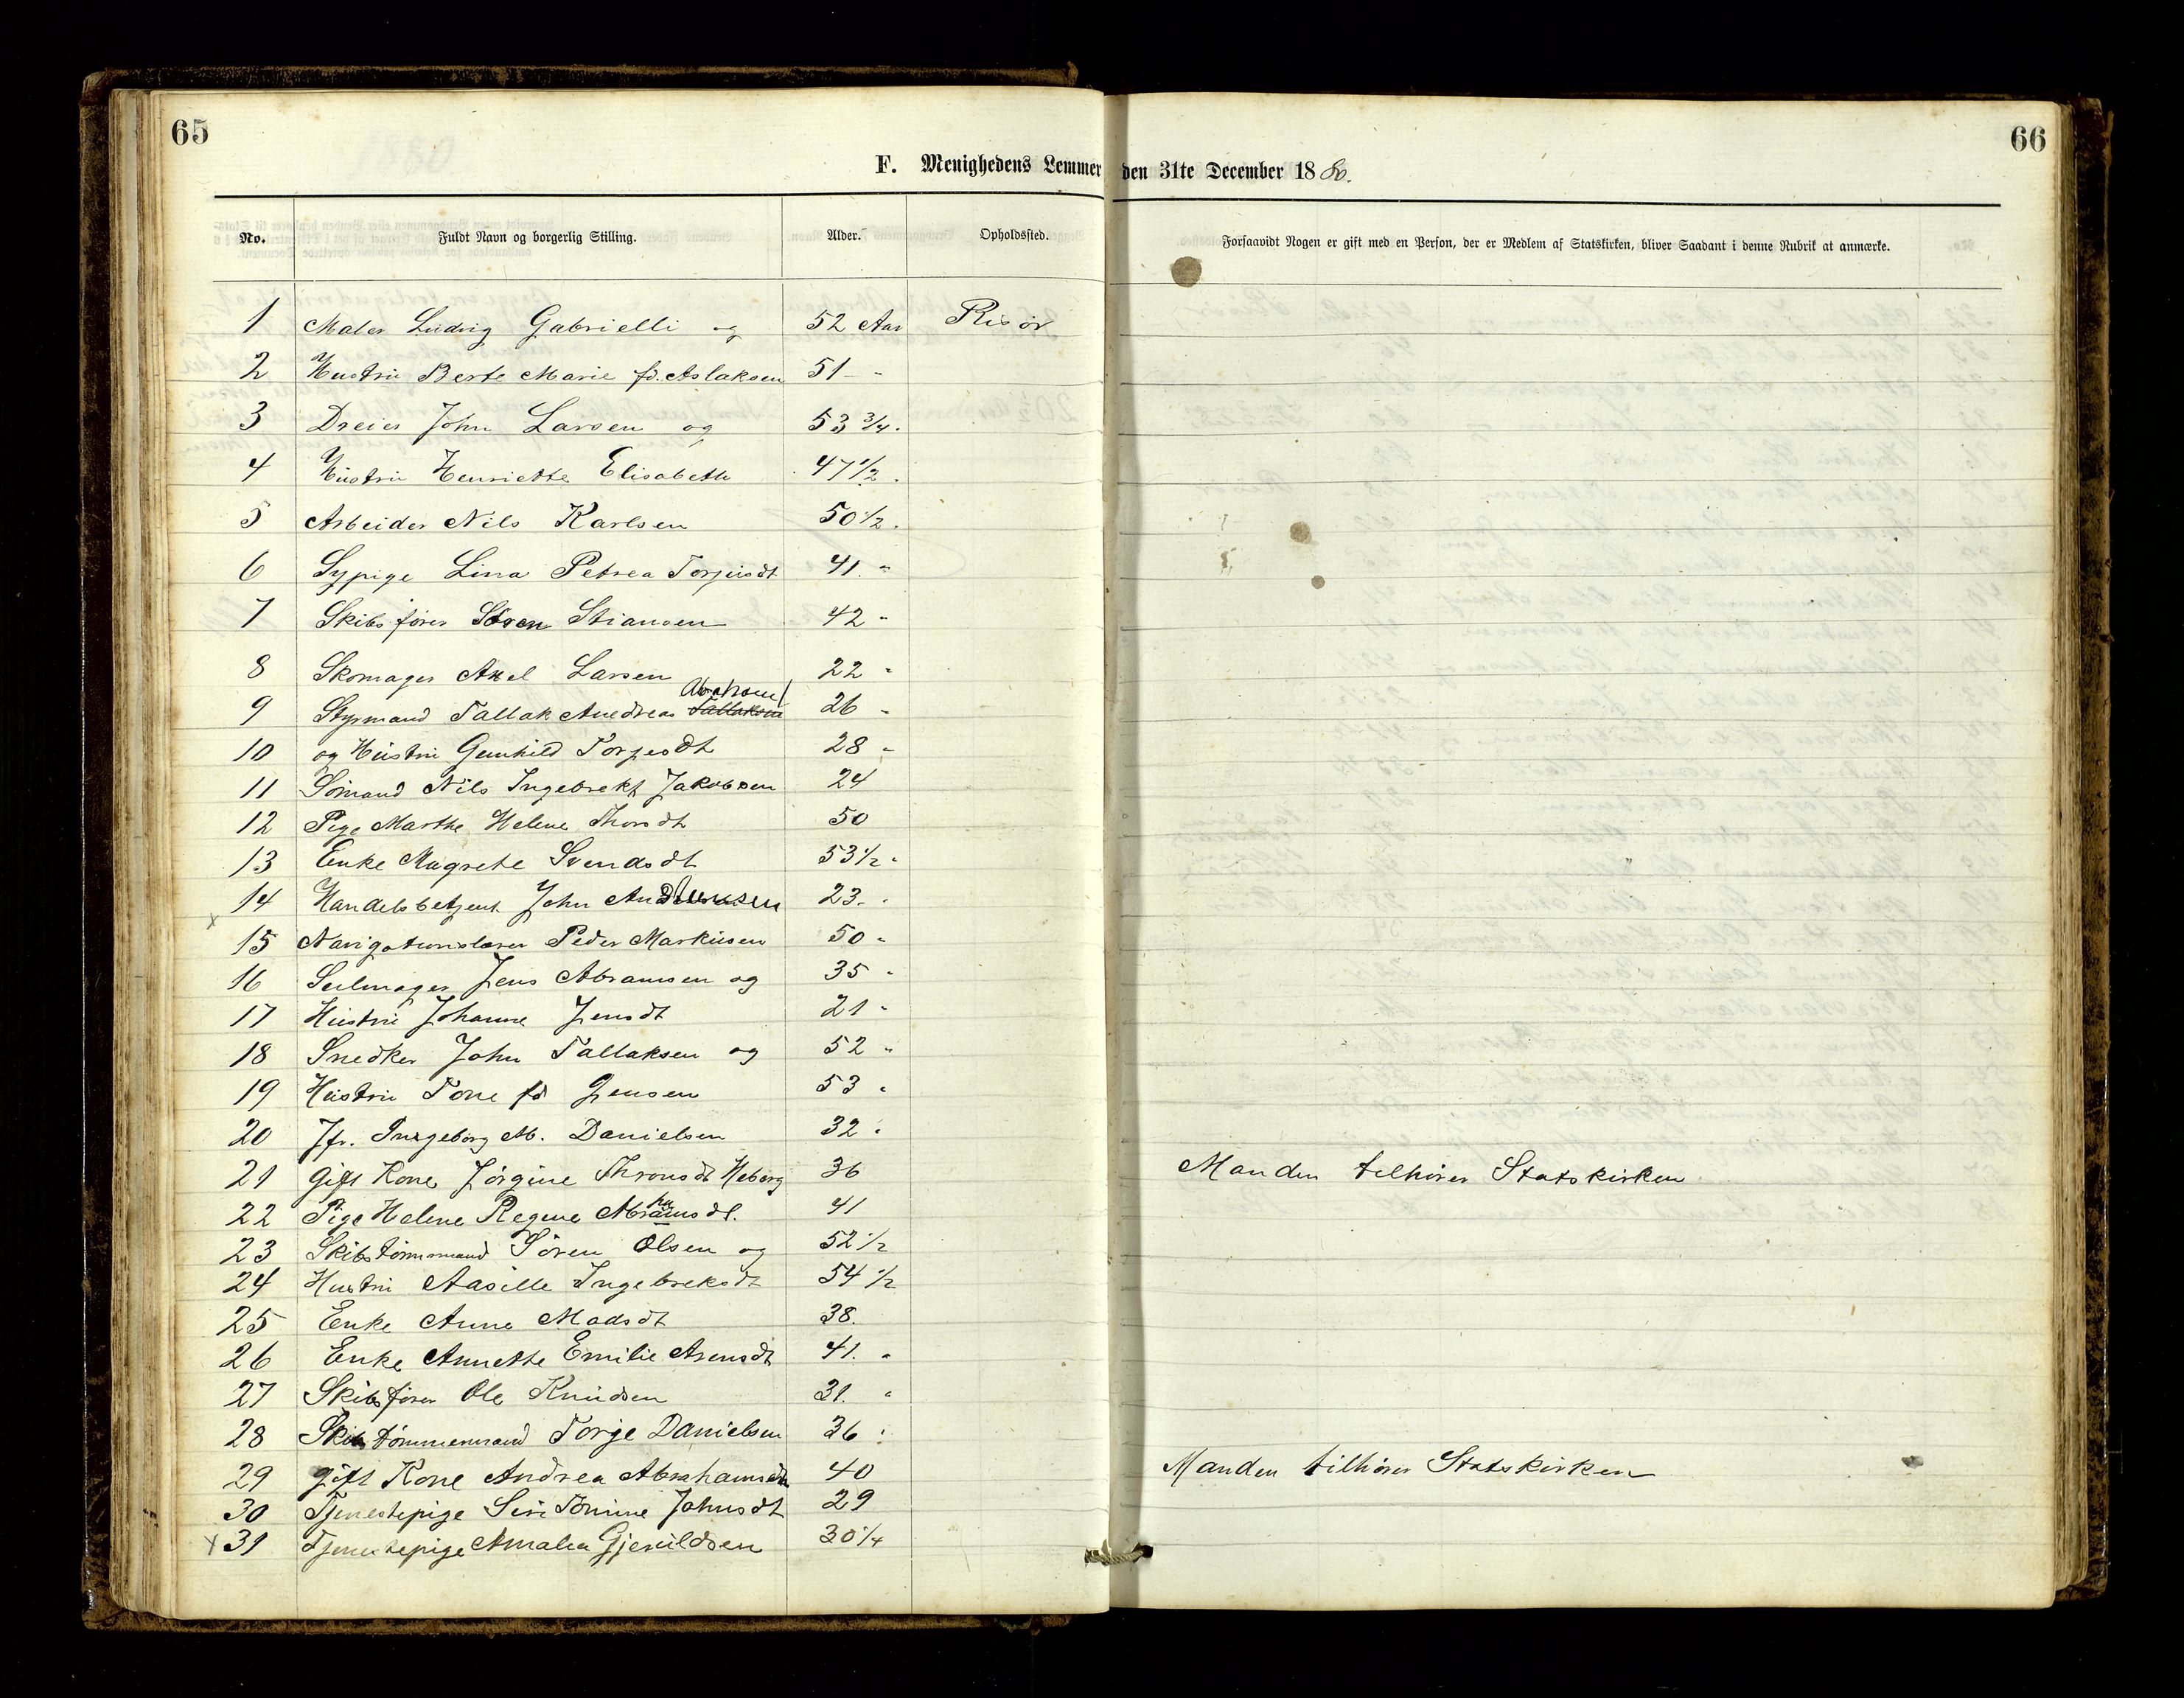 65
66
1880
F. Menighedens Lemmer den 31te December 1880.
No. Fuldt Navn og borgerlig Stilling. Alder. Opholdssted. Forsaavidt Nogen er gift med en Person, der er Medlem af Statskirken, bliver Saadant i denne Rubrik at anmærke.
1 Maler Ludvig Gabrielli og 52 Aar Risør
2 Hustru Berte Marie fd. Aslaksen 51 - "
3 Dreier John Larsen og 53 3/4.
4 Hustru Henriette Elisabeth 47 1/2.
5 Arbeider Nils Karlsen 50 1/2.
6 Sypige Lina Petrea Torjusdt 41. "
7 Skibsfører Søren Stiansen 42 "
8 Skomager Axel Larsen 22 "
Abrahsen
9 Styrmand Tallak Andreas Tallaksen 26 "
10 og Hustru Gunhild Torjesdt 28 "
11 Sømand Nils Ingebrekt Jakobsen 24
12 Pige Marthe Helene Thorsdt 50
13 Enke Magrete Svendsdt 53 1/2 "
14 Handelsbetjent John 23. "
x
15 Navigationslærer Peder Markusen 50 "
16 Seilmager Jens Abramsen og 35 "
17 Hustru Johanne Jensdt 21 "
18 Snedker John Tallaksen og 52 "
19 Hustru Tone fd Jensen 53 "
20 Jfr. Ingeborg M. Danielsen 32 "
21 Gift Kone Jørgine Thronsdt Heborg 36 Manden tilhører Statskirken
ha
22 Pige Helene Regine Abramsdt. 41
23 Skibstømmermand Søren Olsen og 52 1/2
24 Hustru Aasille Ingebreksdt 54 1/2
25 Enke Anne Madsdt 38.
26 Enke Annette Emilie Arensdt 41. "
27 Skibsfører Ole Knudsen 31. "
28 Skibstømmermand Torje Danielsen 36 "
29 gift Kone Andrea Abrahamsdt 40 Manden tilhører Statskirken
30 Tjenestepige Siri Tomine Johnsdt 29
x 31 Tjenestepige Amalia Gjeruldsen 30 1/4